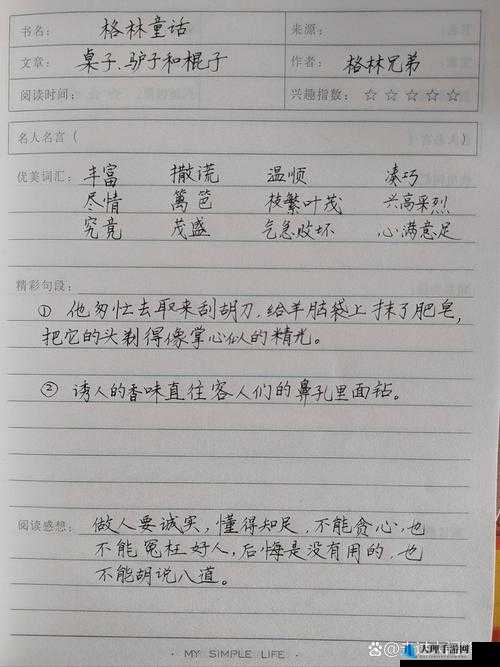 书名： 格林童话 来源：
文章： 桌子、驴子和棍子 作者： 格林兄弟
阅读时间： 兴趣指数：☆☆☆☆☆
名人名言（ ）
优美词汇： 丰富 撒谎 温顺 凑巧
尽情 篱笆 枝繁叶茂 兴高采烈
究竟 茂盛 气急败坏 心满意足
精彩句段：
① 他匆忙去取来刮胡刀，给羊脑袋上抹了肥皂，
把它的头剃得像掌心似的精光。
② 诱人的香味直往客人们的鼻孔里面钻。
阅读感想： 做人要诚实，懂得知足，不能贪心，也
不能冤枉好人，后悔是没有用的，也
不能胡说八道。
· MY SIMPLE LIFE ·
大理手游网